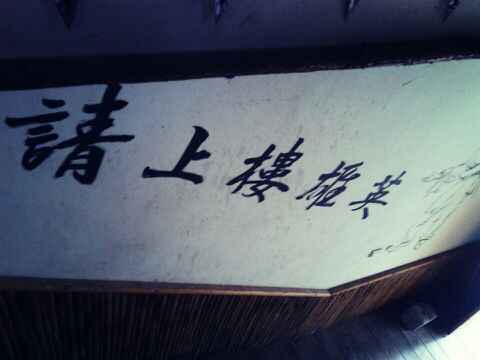 英雄樓上請